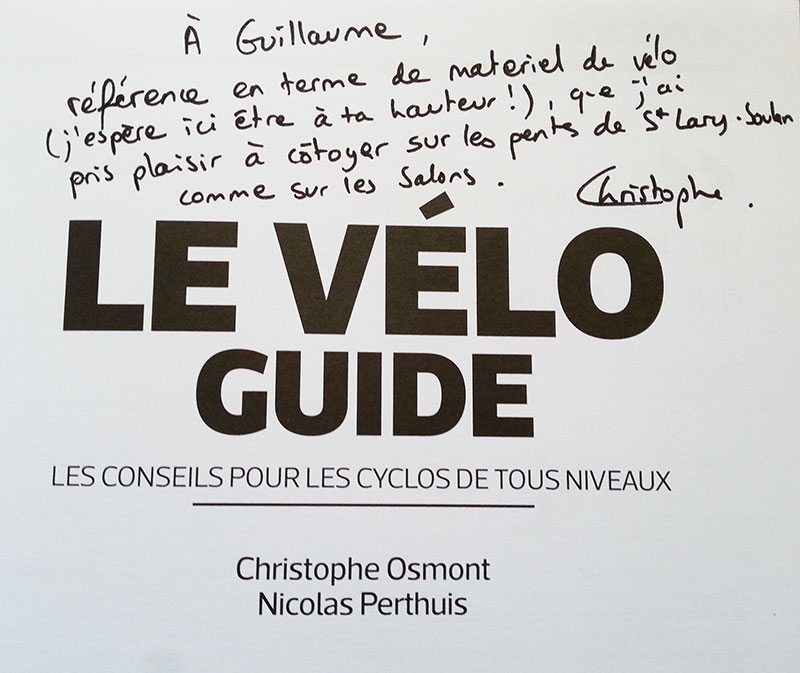 À Guillaume,
référence en terme de materiel de vélo
(j'espère ici être à ta hauteur !), que j'ai
pris plaisir à côtoyer sur les pentes de St Lary-Soulan
comme sur les salons.
Christophe.
LE VÉLO
GUIDE
LES CONSEILS POUR LES CYCLOS DE TOUS NIVEAUX
Christophe Osmont
Nicolas Perthuis